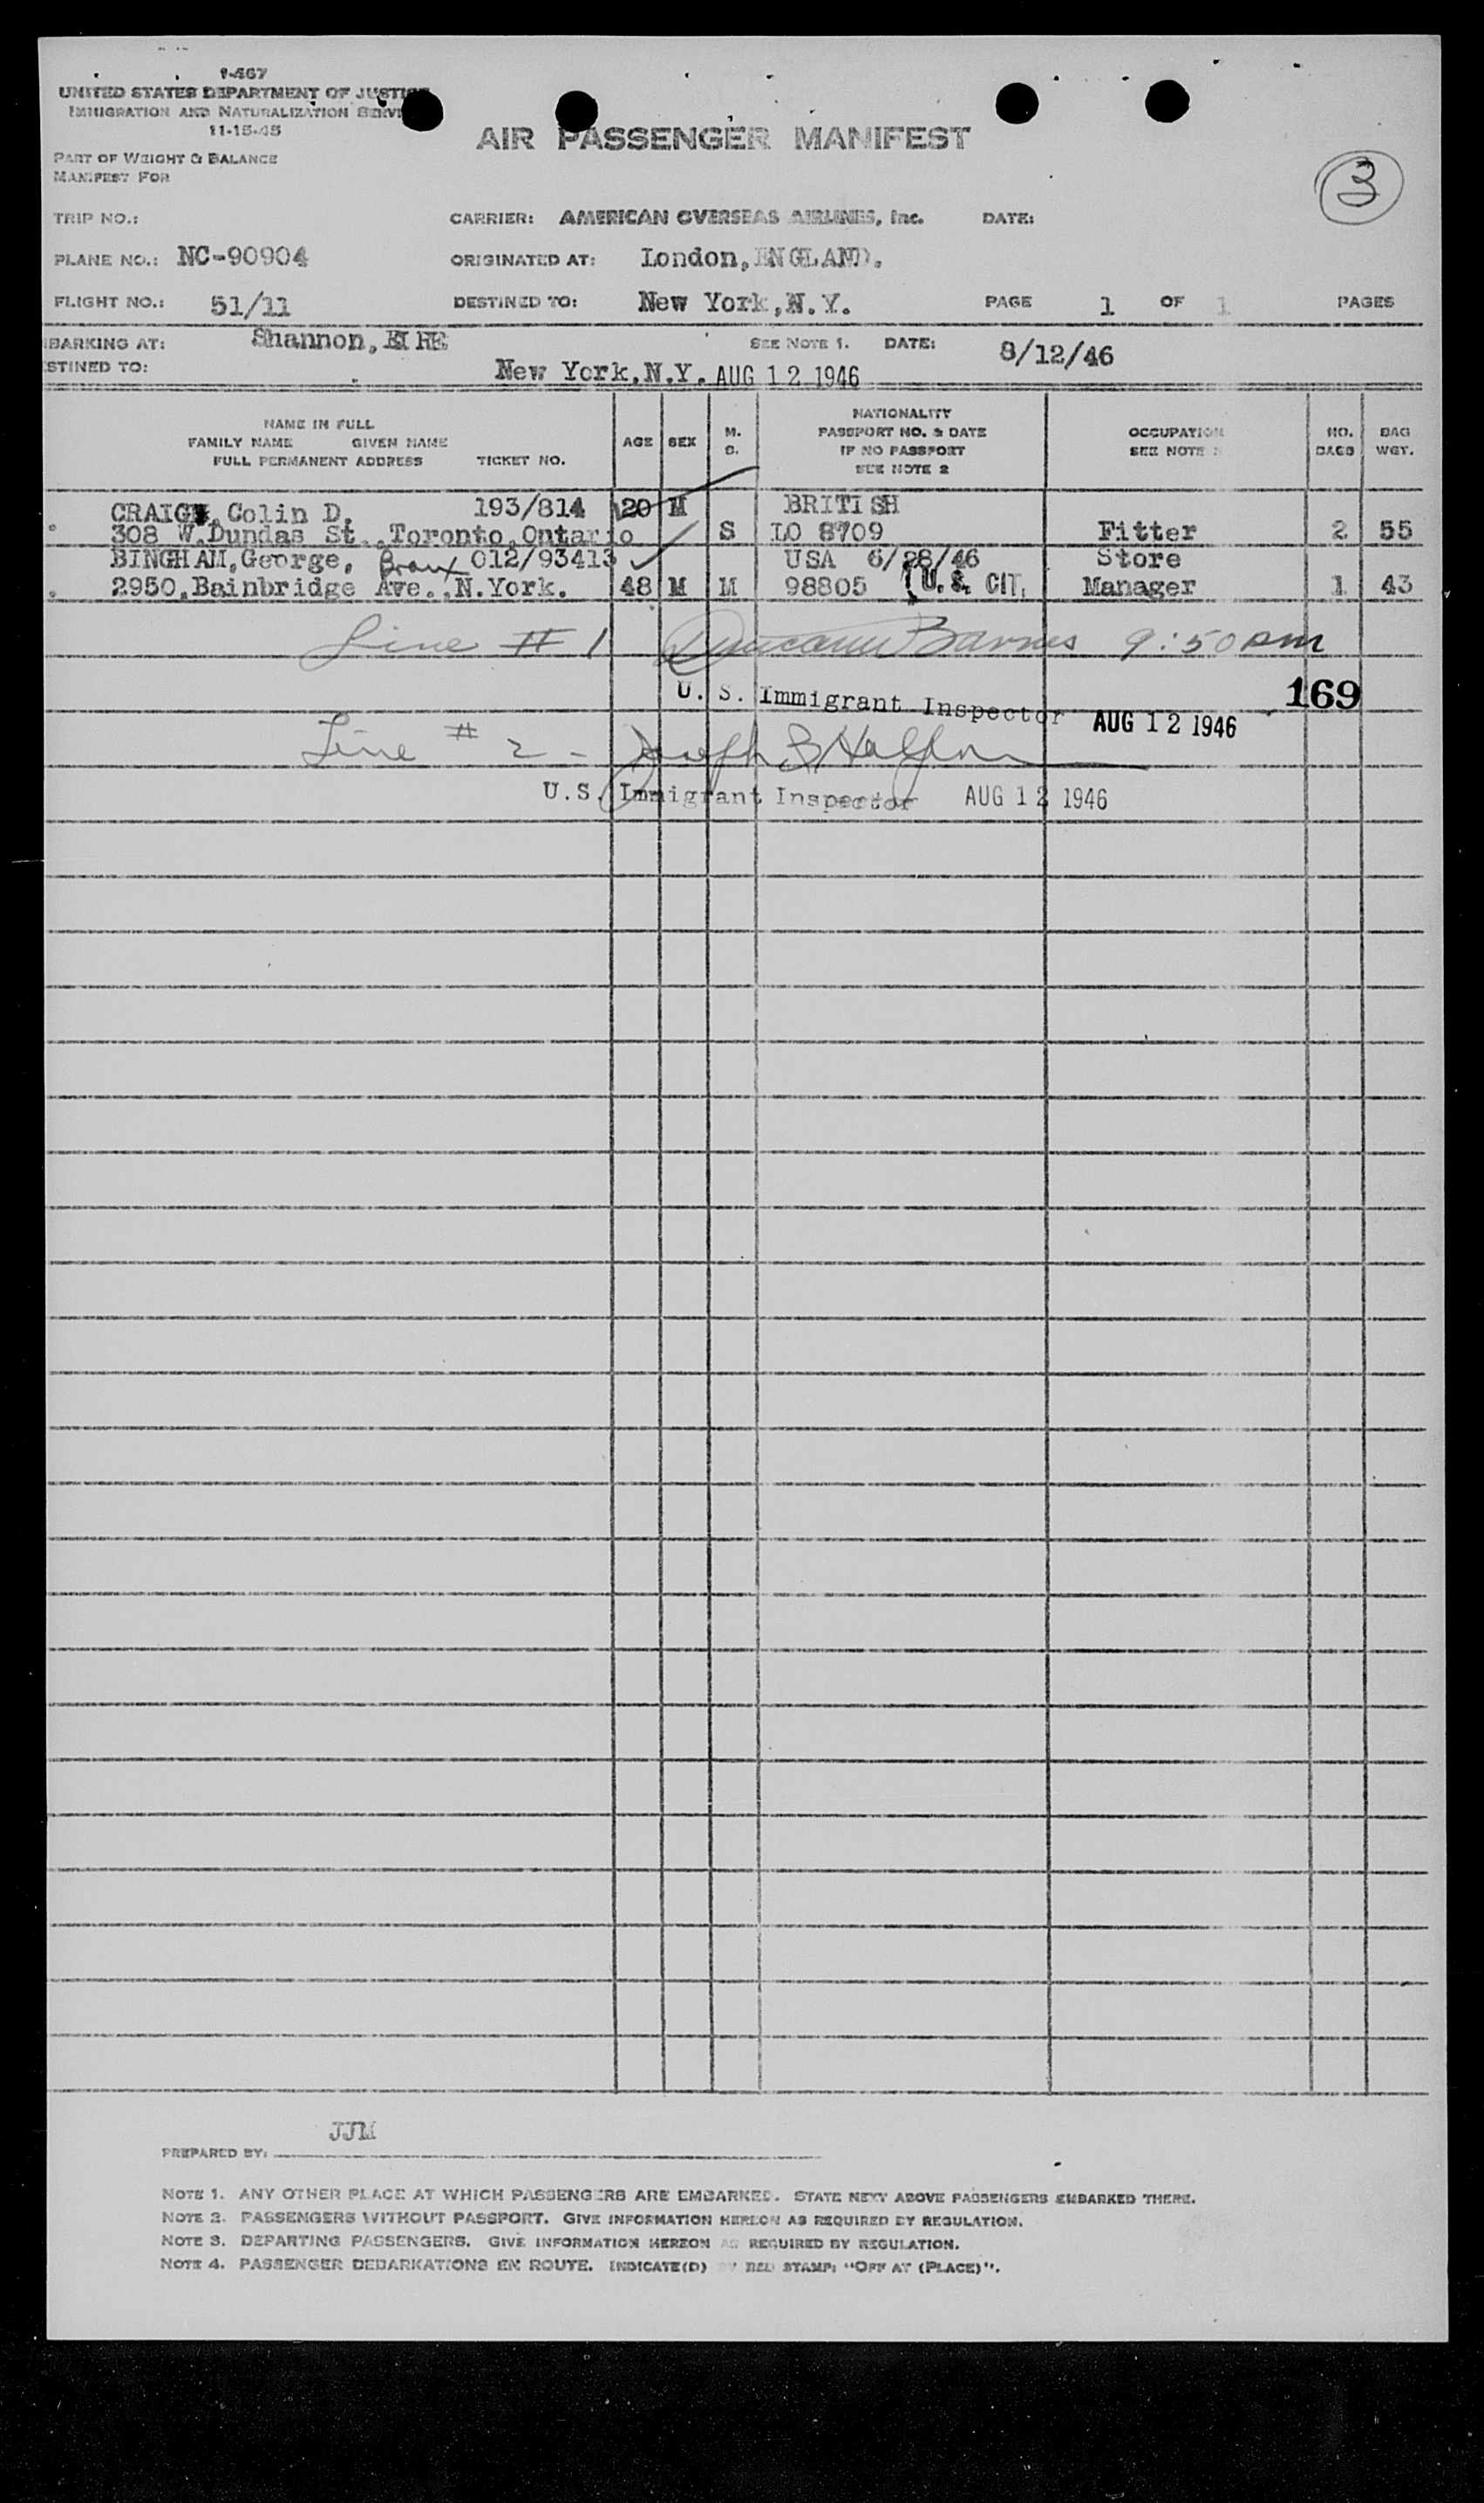 I-467
UNITED STATES DEPARTMENT OF JUSTICE
IMMIGRATION AND NATURALIZATION SERVI
11-15-45
AIR PASSENGER MANIFEST
PART OF WEIGHT & BALANCE
MANIFEST FOR
3
TRIP NO.: CARRIER: AMERICAN OVERSEAS AIRLINES, Inc. DATE:
PLANE NO.: NC-90904 ORIGINATED AT: London, ENGLAND.
FLIGHT NO.: 51/11 DESTINED TO: New York, N.Y. PAGE 1 OF 1 PAGES
BARKING AT: Shannon, EIRE SEE NOTE 1. DATE: 8/12/46
STINED TO: New York, N.Y. AUG 12 1946
NAME IN FULL
FAMILY NAME GIVEN NAME
FULL PERMANENT ADDRESS TICKET NO. AGE SEX M. S. NATIONALITY
PASSPORT NO. & DATE
IF NO PASSPORT
SEE NOTE 2 OCCUPATION
SEE NOTE NO.
BAGS BAG
WGT.
CRAIG, Colin D. 193/814 20 M BRITISH
308 W.Dundas St., Toronto, Ontario S LO 8709 Fitter 2 55
BINGHAM, George, Bronx 012/93413 USA 6/28/46 Store
2950, Bainbridge Ave., N.York. 48 M M 98805 (U.S. CIT. Manager 1 43
Line # 1 Barnes 9:50 pm
U. S. Immigrant Inspector AUG 12 1946 169
Line # 2 - Joseph
U.S. Immigrant Inspector AUG 12 1946
JJM
PREPARED BY:
NOTE 1. ANY OTHER PLACE AT WHICH PASSENGERS ARE EMBARKED. STATE NEXT ABOVE PASSENGERS EMBARKED THERE.
NOTE 2. PASSENGERS WITHOUT PASSPORT. GIVE INFORMATION HEREON AS REQUIRED BY REGULATION.
NOTE 3. DEPARTING PASSENGERS. GIVE INFORMATION HEREON AS REQUIRED BY REGULATION.
NOTE 4. PASSENGER DEBARKATIONS EN ROUTE. INDICATE(D) BY RED STAMP: "OFF AT (PLACE)".